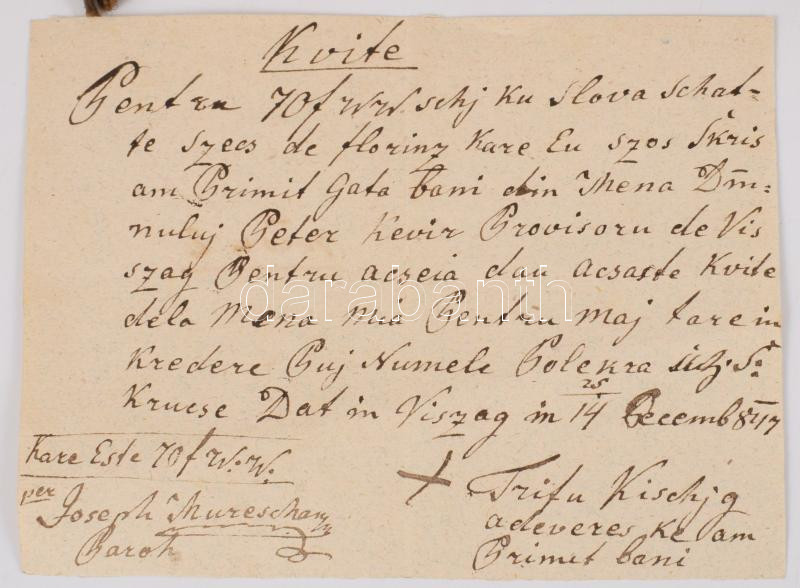 Kvite
Pentru 70f WW. schj ku Slova Schat-
te Szecs de florinz Kare Eu szos Skris
am Primit Gata bani din Mena Dm̄-
nuluj Peter Kevir Provisoru de Vis
szag Pentru acseia dau acsaste Kvite
dela Mena mia Pentru maj tare in
kredere Puj Numele Polekra schj S:
Krucse Dat in Viszag in 25/14 Decemb 847
Kare Este 70f W. W.
per
Joseph Mureschan
Paroh
+ Trifu Kischjg
adeveres ke am
Primit bani
darabanth